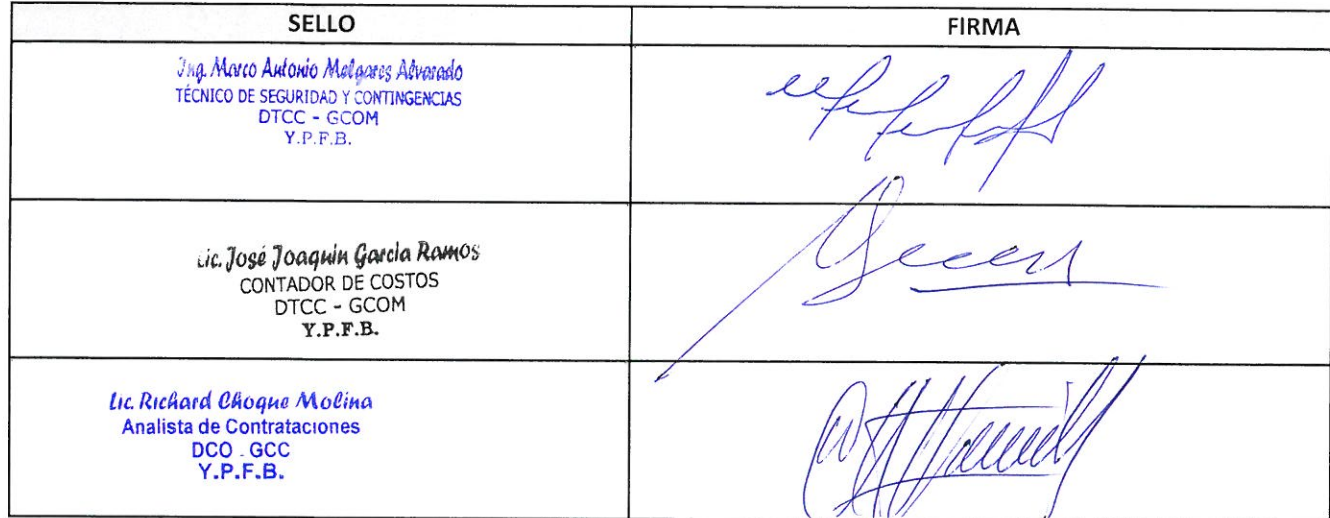 SELLO
FIRMA
Ing. Marco Antonio Melgares Alvarado
TÉCNICO DE SEGURIDAD Y CONTINGENCIAS
DTCC - GCOM
Y.P.F.B.
Lic. José Joaquin García Ramos
CONTADOR DE COSTOS
DTCC - GCOM
Y.P.F.B.
Lic. Richard Choque Molina
Analista de Contrataciones
DCO - GCC
Y.P.F.B.